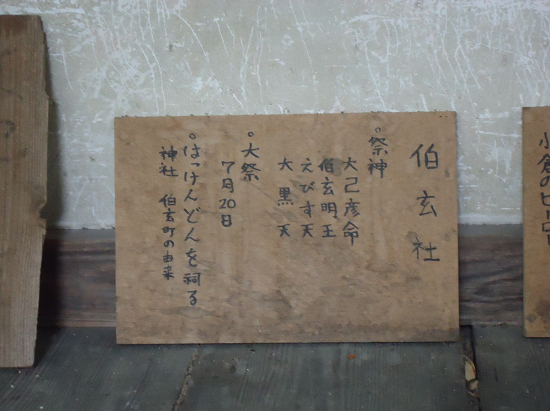 伯玄社
○祭神
大己彦命
伯玄明王
えびす天
大黒天
○大祭
7月20日
○はっけんどんを祠る
神社 伯玄町の由来
小倉の